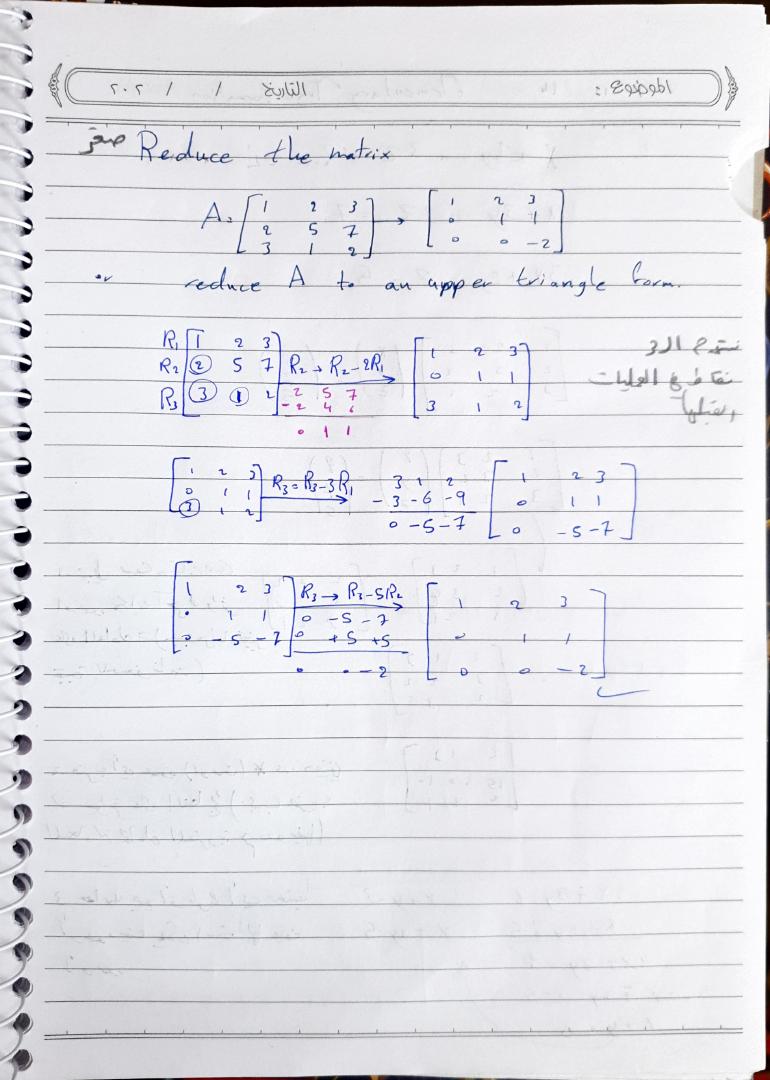 الموضوع : التاريخ / / ٢٠٢
صفر Reduce the matrix
A = [1 2 3; 2 5 7; 3 1 2] → [1 2 3; 0 1 1; 0 0 -2]
or reduce A to an upper triangle form.
R1 [1 2 3
R2 2 5 7
R3 3 1 2]
R2 → R2 - 2R1
2 5 7
-2 4 6
0 1 1
[1 2 3
0 1 1
3 1 2]
نقاط في العمليات
[1 2 3
0 1 1
3 1 2]
R3 = R3 - 3R1
3 1 2
- 3 - 6 - 9
0 - 5 - 7
[1 2 3
0 1 1
0 -5 -7]
[1 2 3
0 1 1
0 -5 -7]
R3 → R3 - 5R2
0 -5 -7
0 +5 +5
0 0 -2
[1 2 3
0 1 1
0 0 -2]